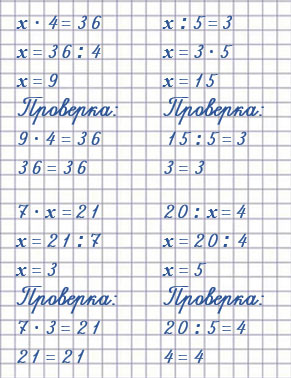 x · 4 = 36
x = 36 : 4
x = 9
Проверка:
9 · 4 = 36
36 = 36
x : 5 = 3
x = 3 · 5
x = 15
Проверка:
15 : 5 = 3
3 = 3
7 · x = 21
x = 21 : 7
x = 3
Проверка:
7 · 3 = 21
21 = 21
20 : x = 4
x = 20 : 4
x = 5
Проверка:
20 : 5 = 4
4 = 4